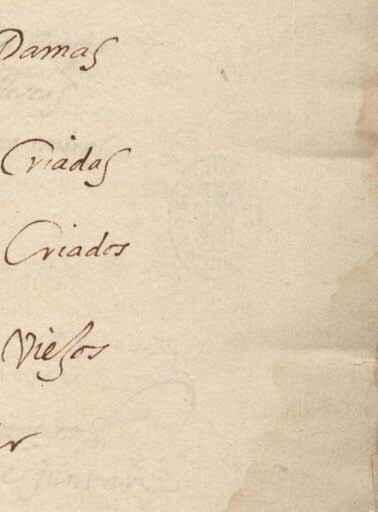 Damas
Criadas
Criados
Viejos